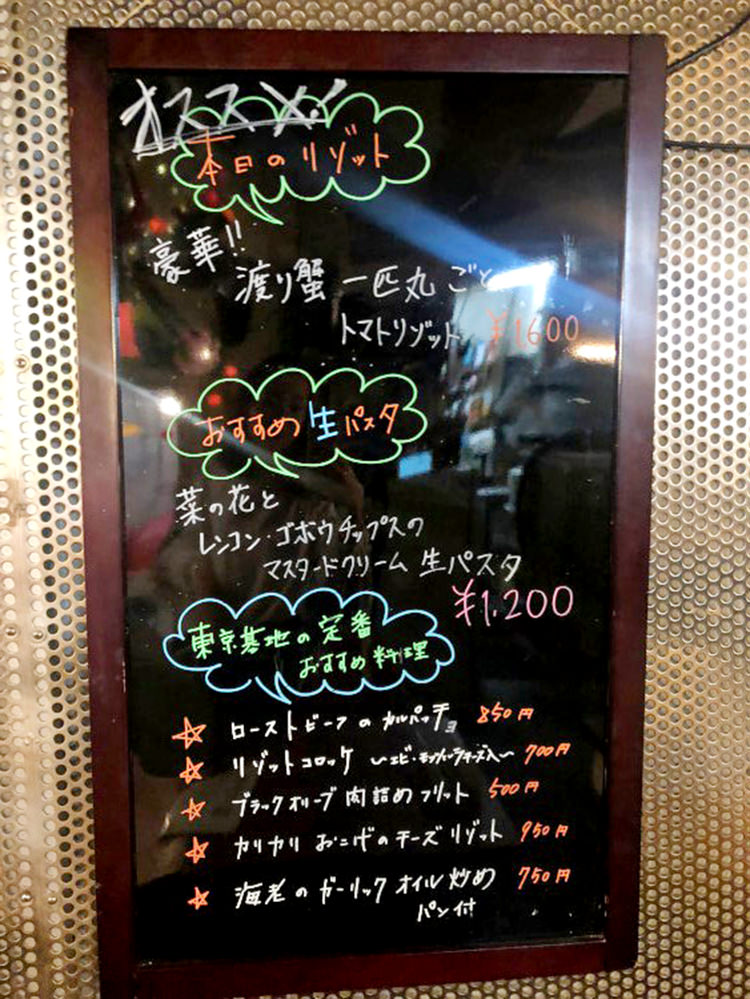 オススメ!
本日のリゾット
豪華!!
渡り蟹 一匹丸ごと
トマトリゾット ¥1600
おすすめ生パスタ
菜の花と
レンコン・ゴボウチップスの
マスタードクリーム 生パスタ
¥1.200
東京基地の定番
おすすめ料理
ローストビーフのカルパッチョ 850円
リゾットコロッケ 〜エビ・モッツァレラチーズ入〜 700円
ブラックオリーブ肉詰めフリット 500円
カリカリ おこげのチーズリゾット 950円
海老のガーリックオイル炒め 750円
パン付